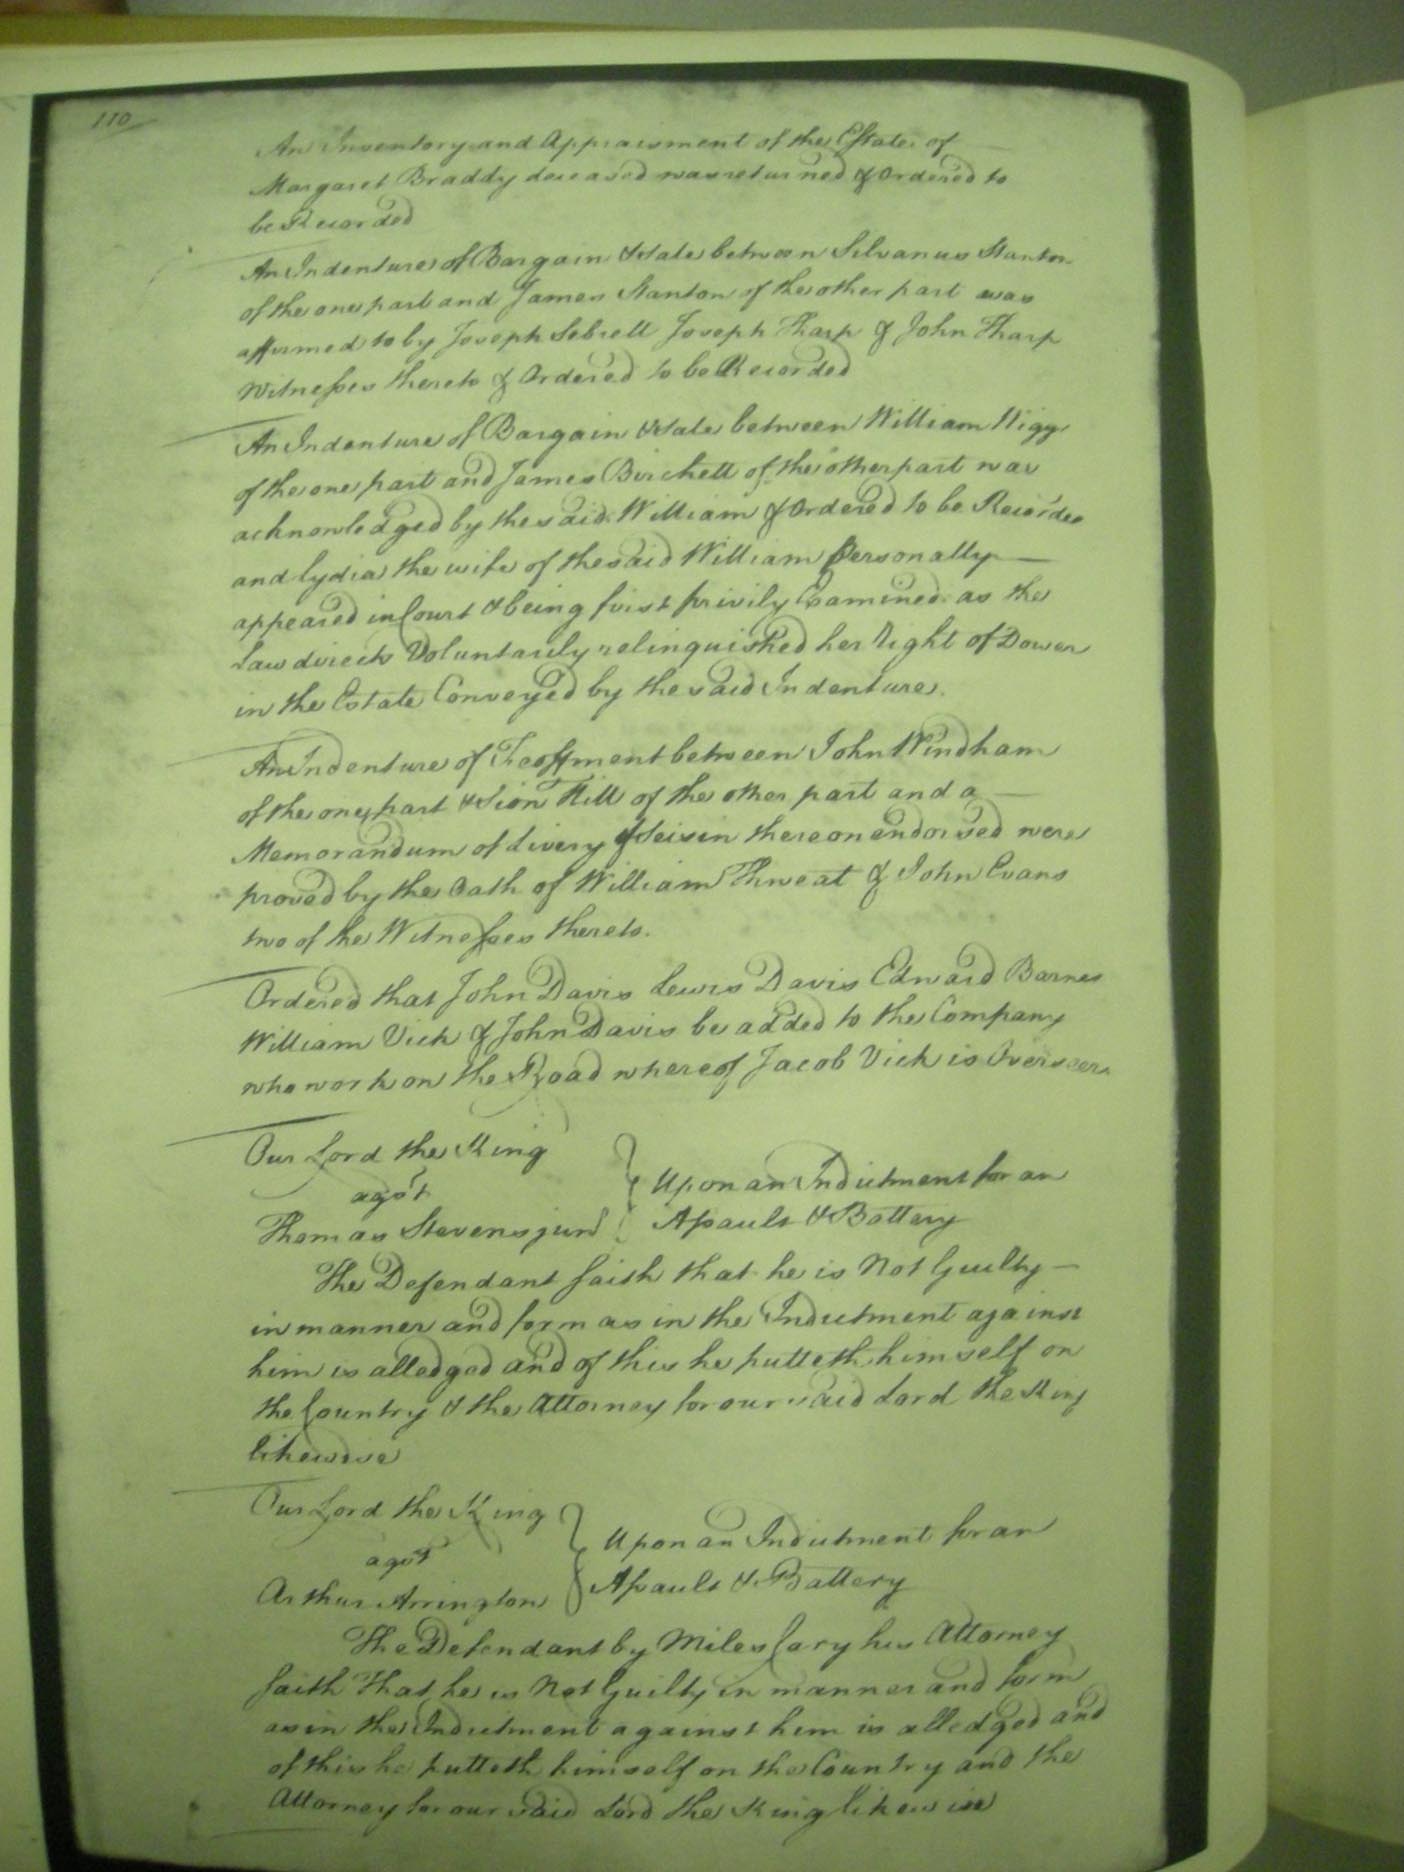 110
An Inventory and Appraisment of the Estate of
Margaret Braddy deceased was returned & Ordered to
be Recorded
An Indenture of Bargain & Sale between Silvanus Stanton
of the one part and James Stanton of the other part was
affirmed to by Joseph Sebrell Joseph Tharp & John Tharp
Witnesses thereto & Ordered to be Recorded
An Indenture of Bargain & Sale between William Wigg
of the one part and James Birchett of the other part was
acknowledged by the said William & Ordered to be Recorded
and Lydia the wife of the said William Personally
appeared in Court & being first privily Examined as the
Law directs Voluntarily relinquished her right of Dower
in the Estate Conveyed by the said Indenture.
An Indenture of Feoffment between John Windham
of the one part & Sion Hill of the other part and a
Memorandum of Livery & Seisin thereon endorsed were
proved by the Oath of William Thweat & John Evans
two of the Witnesses thereto.
Ordered that John Davis Lewis Davis Edward Barnes
William Vick & John Davis be added to the Company
who work on the Road whereof Jacob Vick is Overseer
Our Lord the King
agst
Thomas Stevens junr
Upon an Indictment for an
Assault & Battery
The Defendant saith that he is Not Guilty
in manner and form as in the Indictment against
him is alledged and of this he putteth himself on
the Country & the Attorney for our said Lord the King
likewise
Our Lord the King
agst
Arthur Arrington
Upon an Indictment for an
Assault & Battery
The Defendant by Miles Cary his Attorney
saith that he is Not Guilty in manner and form
as in the Indictment against him is alledged and
of this he putteth himself on the Country and the
Attorney for our said Lord the King likewise